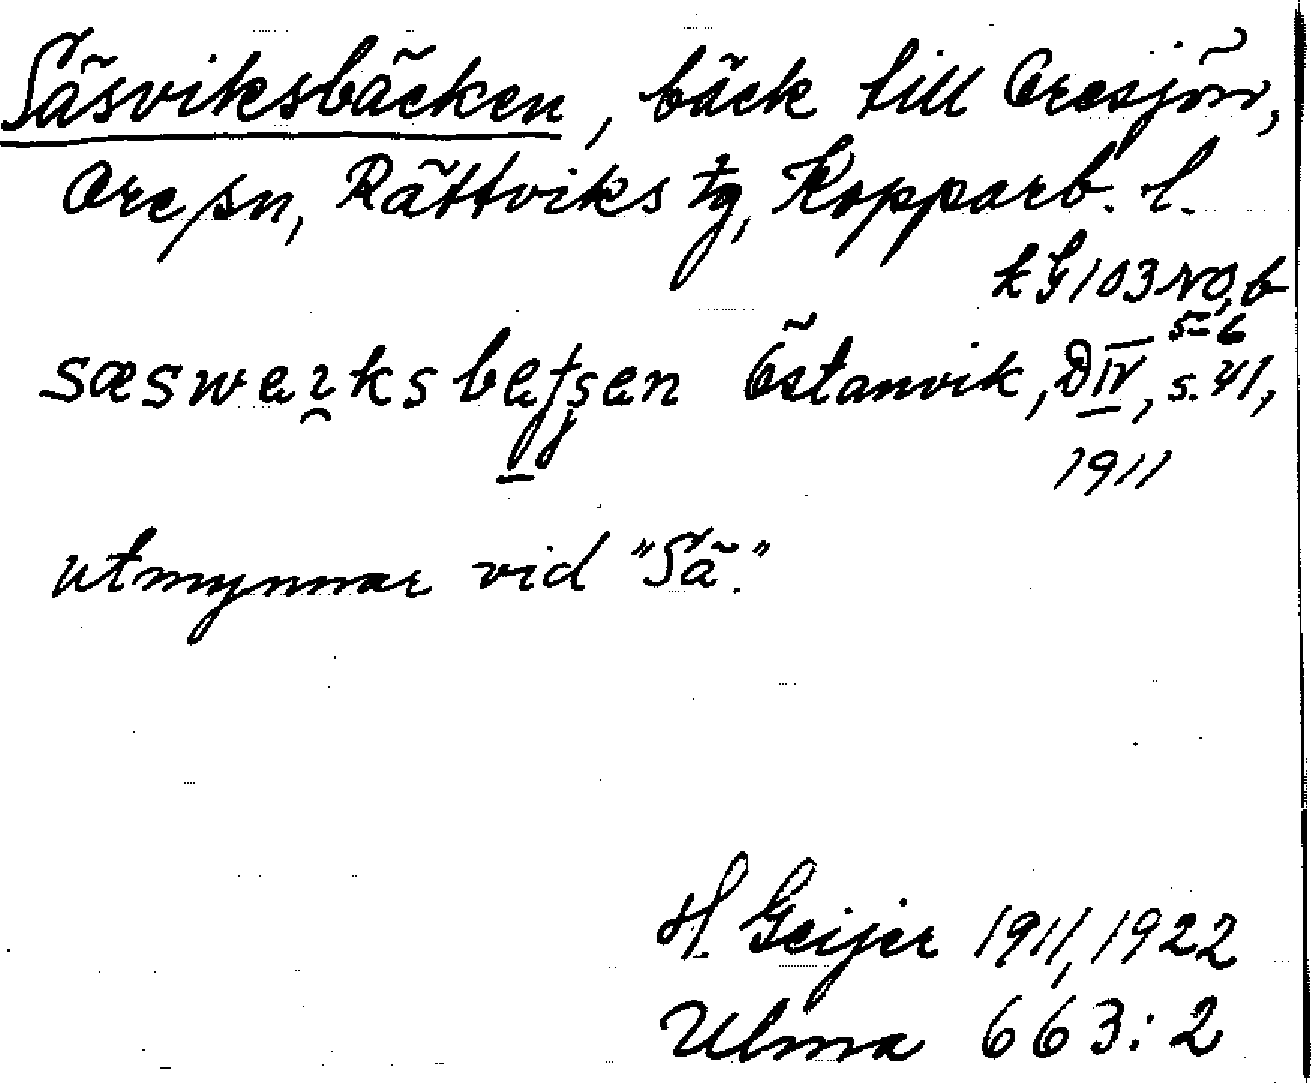 Säsviksbäcken, bäck till Oresjön,
Ore sn, Rättviks tg, Kopparb. l.
k G 103 NO, b
5-6
Östanvik, D IV, s. 41,
1911
utmynnar vid "Sä".
H. Geijer 1911, 1922
Ulma 663:2